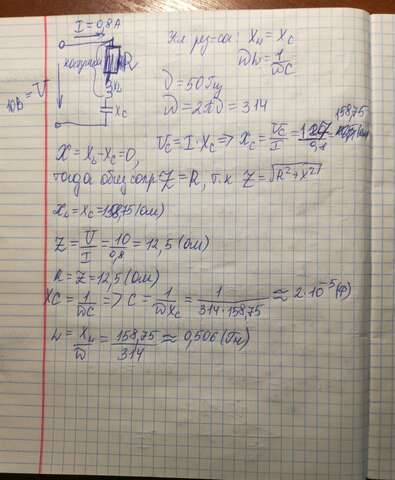 I = 0,8A
Усл рез-са: X_L = X_C
R
ωL = 1/ωC
X_L
X_C
10В = U
ν = 50Гц
ω = 2πν = 314
U_C = I·X_C => X_C = U_C/I = 127/0,8 = 158,75 (Ом)
X = X_L - X_C = 0,
тогда общ сопр Z = R, т.к Z = √(R²+X²)
X_L = X_C = 158,75 (Ом)
Z = U/I = 10/0,8 = 12,5 (Ом)
R = Z = 12,5 (Ом)
XC = 1/ωC => C = 1/ωX_C = 1/314·158,75 ≈ 2·10⁻⁵ (Ф)
L = X_L/ω = 158,75/314 ≈ 0,506 (Гн)